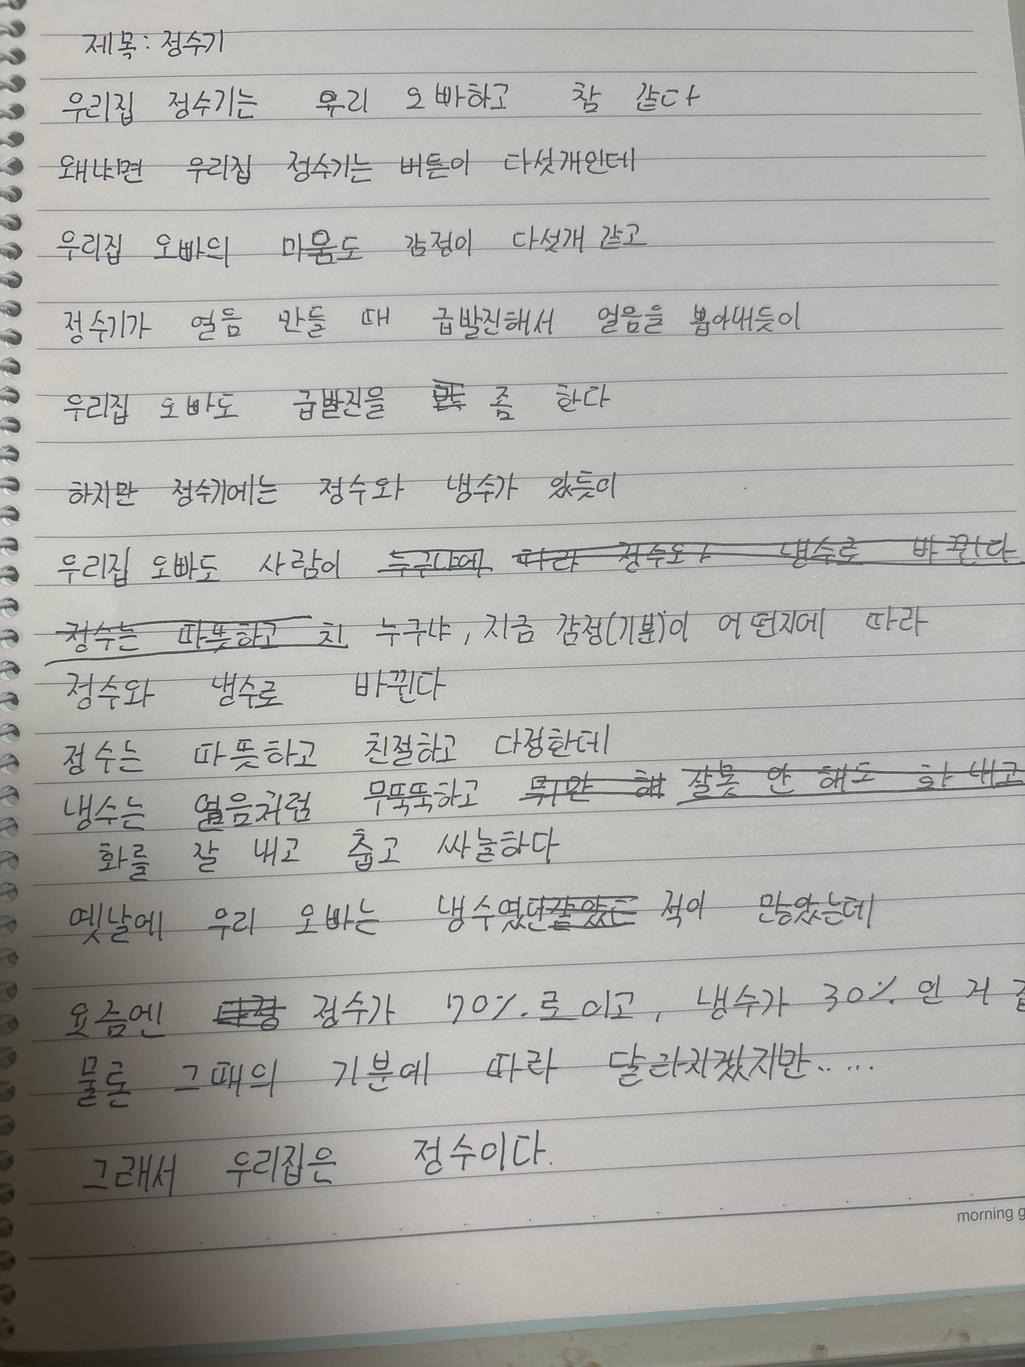 제목: 정수기
우리집 정수기는 우리 오빠하고 참 같다
왜냐면 우리집 정수기는 버튼이 다섯개인데
우리집 오빠의 마음도 감정이 다섯개 같고
정수기가 얼음 만들 때 급발진해서 얼음을 뽑아내듯이
우리집 오빠도 급발진을 좀 한다
하지만 정수기에는 정수와 냉수가 있듯이
우리집 오빠도 사람이 누구냐에 따라 정수와 냉수로 바뀐다
정수는 따뜻하고 친 누구냐, 지금 감정(기분)이 어떤지에 따라
정수와 냉수로 바뀐다
정수는 따뜻하고 친절하고 다정한데
냉수는 얼음처럼 무뚝뚝하고 뭐만 해 잘못 안 해도 화 내고
화를 잘 내고 춥고 싸늘하다
옛날에 우리 오빠는 냉수였던 적이 많았는데
요즘엔 정수가 70%로이고, 냉수가 30%인 거
물론 그때의 기분에 따라 달라지겠지만.....
그래서 우리집은 정수이다.
morning g